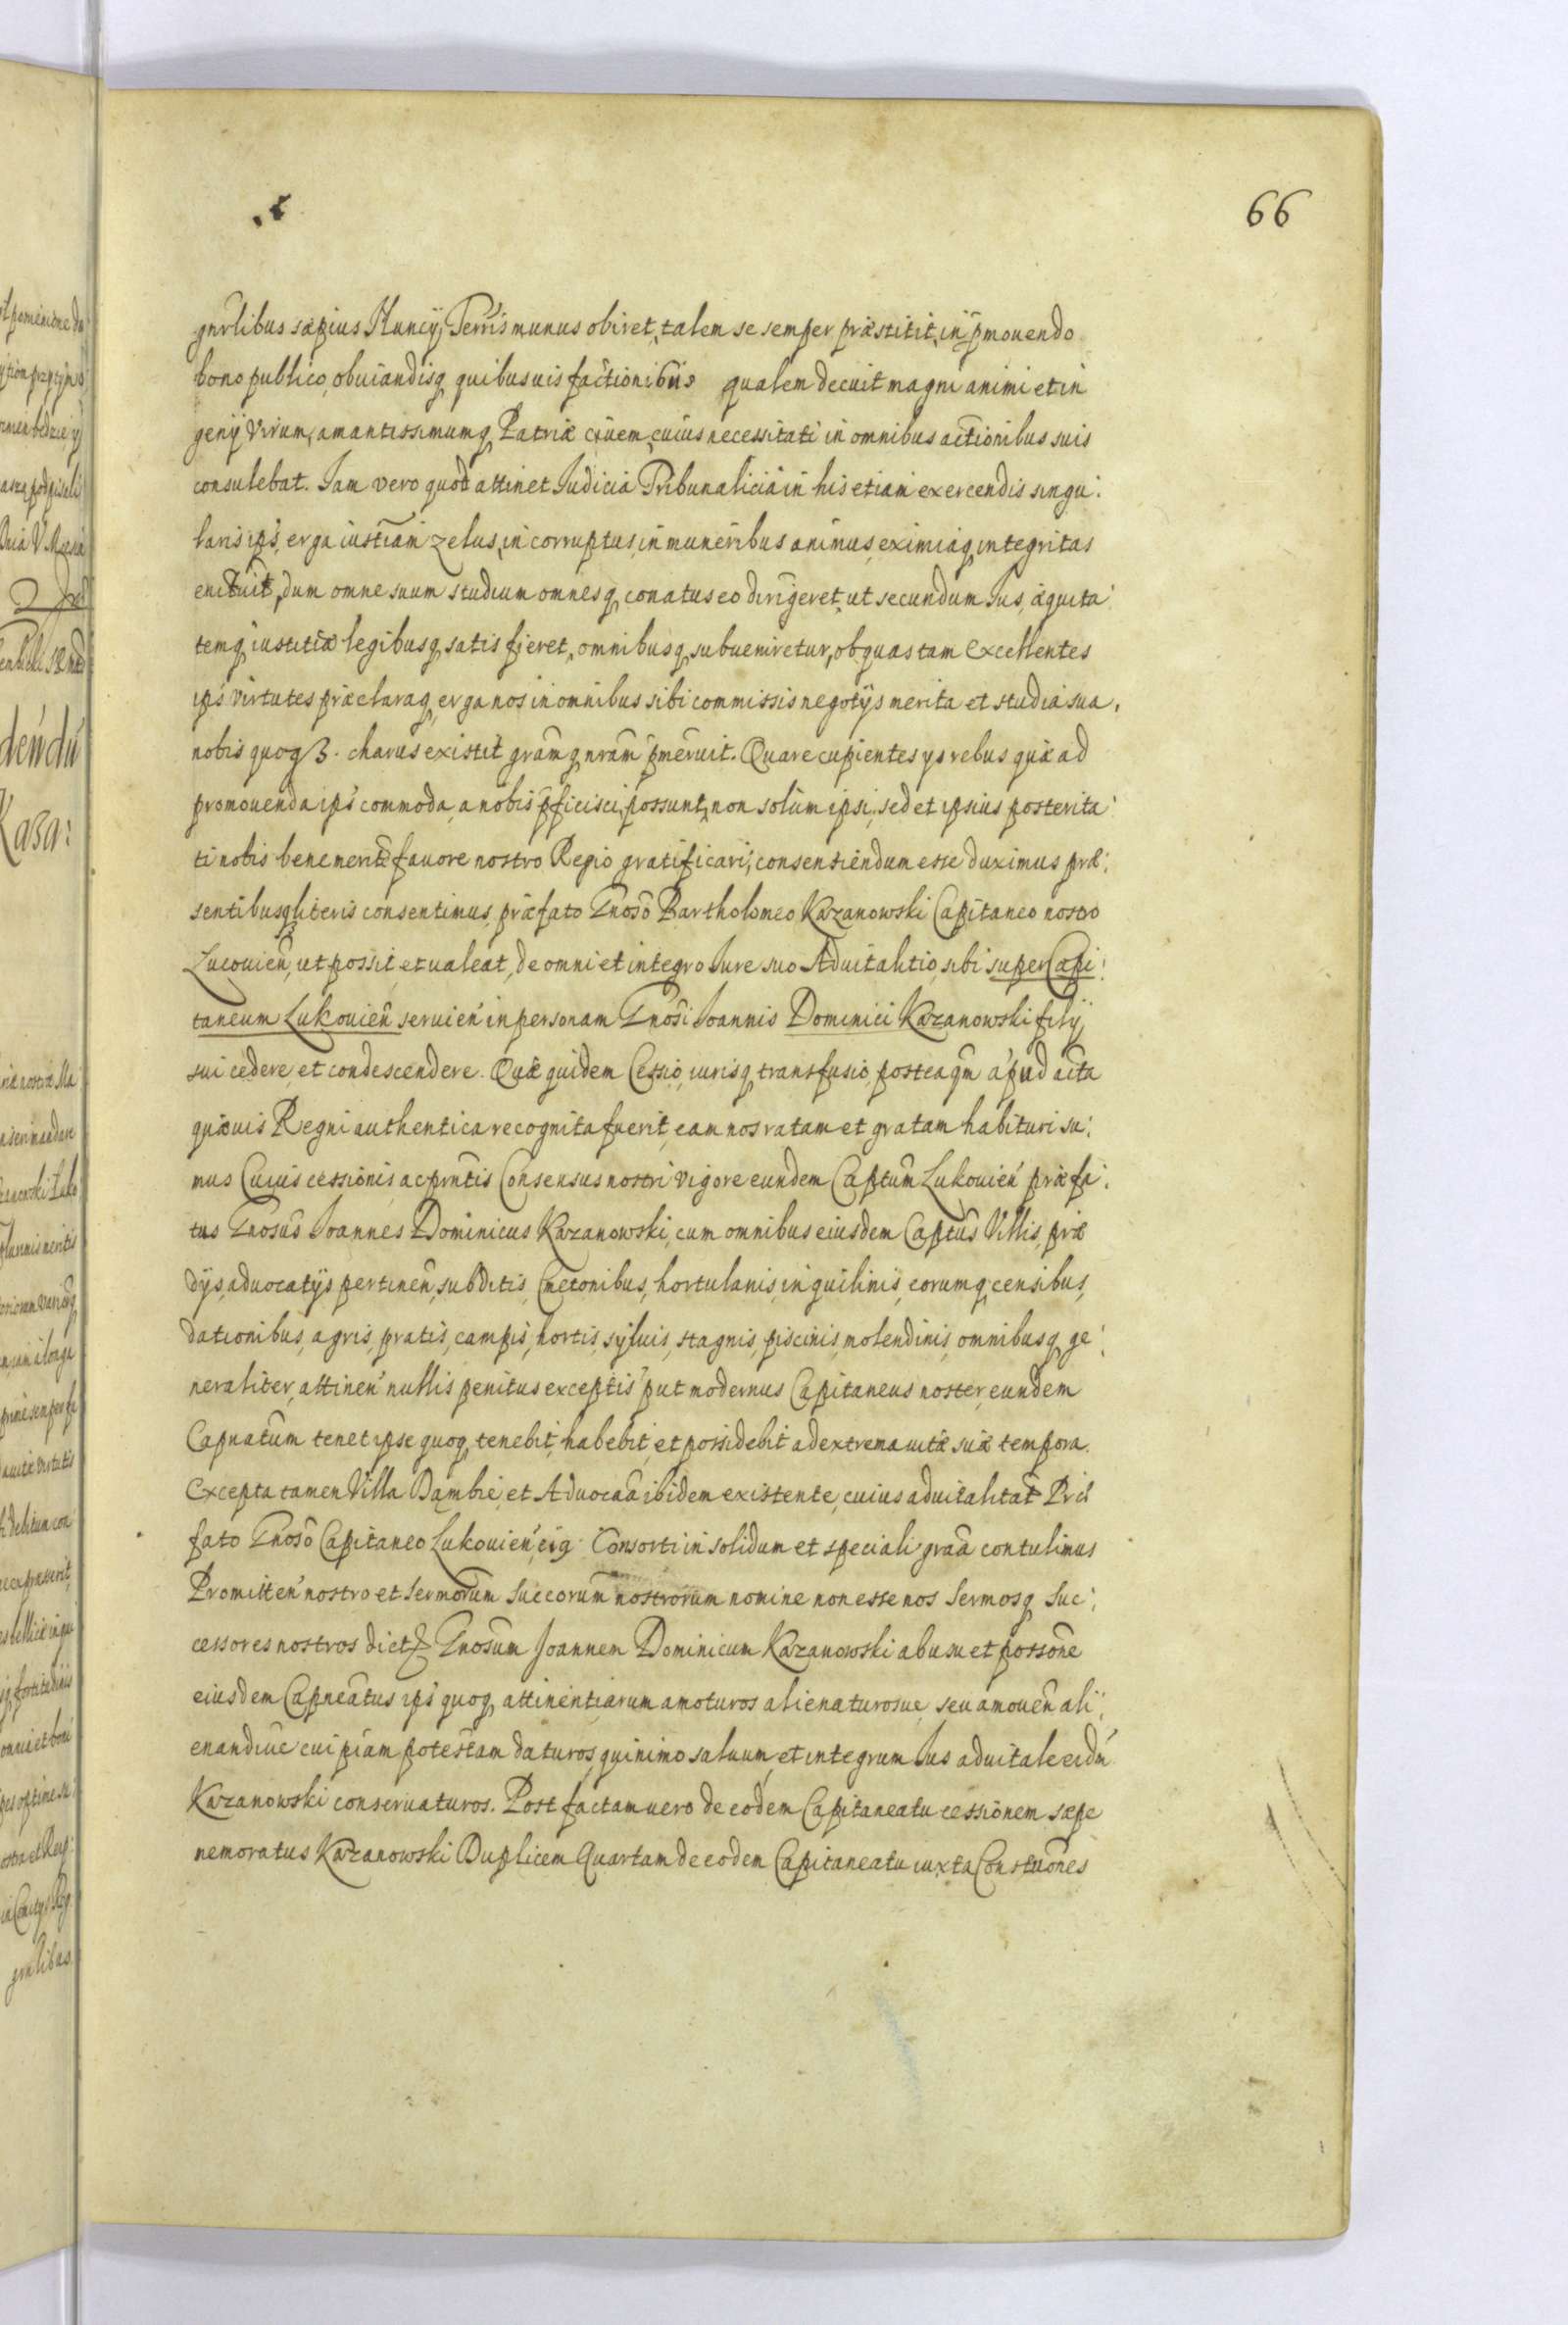 66
gnrlibus sæpius Nuncÿ Terris munus obiret, talem se semper præstitit, in pmouendo
bono publico, obuiandisq quibusuis factionibus qualem decuit magni animi et in
genÿ virum, amantissimumq Patriæ ciuem, cuius necessitati in omnibus actionibus suis
consulebat. Iam vero quod attinet Iudicia Tribunalicia in his etiam exercendis singu:
laris ips, erga iustiam zelus, in corruptus, in muneribus animus, eximiaq integritas
enituit, dum omne suum studium omnesq conatus eo dirigeret, ut secundum Ius, æquita:
temq iustitiæ legibusq satis fieret, omnibusq subueniretur, ob quas tam excellentes
ips virtutes præclaraq erga nos in omnibus sibi commissis negotÿs merita et studia sua,
nobis quoq3. charus existit gramq nram pmeruit. Quare cupientes ys rebus quæ ad
promouenda ips commoda, a nobis pficisci possunt, non solum ipsi, sed et ipsius posterita:
ti nobis bene merite fauore nostro Regio gratificari, consentiendum esse duximus præ:
sentibusq literis consentimus, præfato Gnoso Bartholomeo Kazanowski Capitaneo nostro
Lucouien, ut possit, et ualeat, de omni et integro Iure suo Aduitalitio, sibi super Capi:
taneum Lukouien seruien in personam Gnosi Ioannis Dominici Kazanowski filÿ
sui cedere, et condescendere. Quæ quidem Cessio, iurisq transfusio, postea qm apud acta
quæuis Regni authentica recognita fuerit, eam nos ratam et gratam habituri su:
mus Cuius cessionis, ac pntis Consensus nostri vigore eundem Captum Lukouien præfa:
tus Gnosus Ioannes Dominicus Kazanowski, cum omnibus eiusdem Captus Villis, præ
dÿs, aduocatÿs pertinen, subditis, Cmetonibus, hortulanis, inquilinis, eorumq censibus,
dationibus, agris, pratis, campis, hortis, syluis, stagnis, piscinis, molendinis, omnibusq ge:
neraliter, attinen nullis penitus exceptis put modernus Capitaneus noster, eundem
Capnatum tenet ipse quoq tenebit, habebit, et possidebit ad extrema uitæ suæ tempora.
Excepta tamen Villa Dąmbie, et Aduocaa ibidem existente, cuius aduitalitat Præ
fato Gnoso Capitaneo Lukouien, eiq Consorti in solidum et speciali graa contulimus
Promitten nostro et Sermorum Succorum nostrorum nomine non esse nos Sermosq Suc:
cessores nostros dict Gnosum Joannem Dominicum Kazanowski ab usu et possone
eiusdem Capneatus ips quoq attinentiarum amoturos alienaturosue, seu amouen ali:
enandiue cuipiam potestam daturos, quinimo saluum, et integrum Ius aduitale eidm
Kazanowski conseruaturos. Post factam uero de eodem Capitaneatu cessionem sæpe
nemoratus Kazanowski Duplicem Quartam de eodem Capitaneatu iuxta Constuones